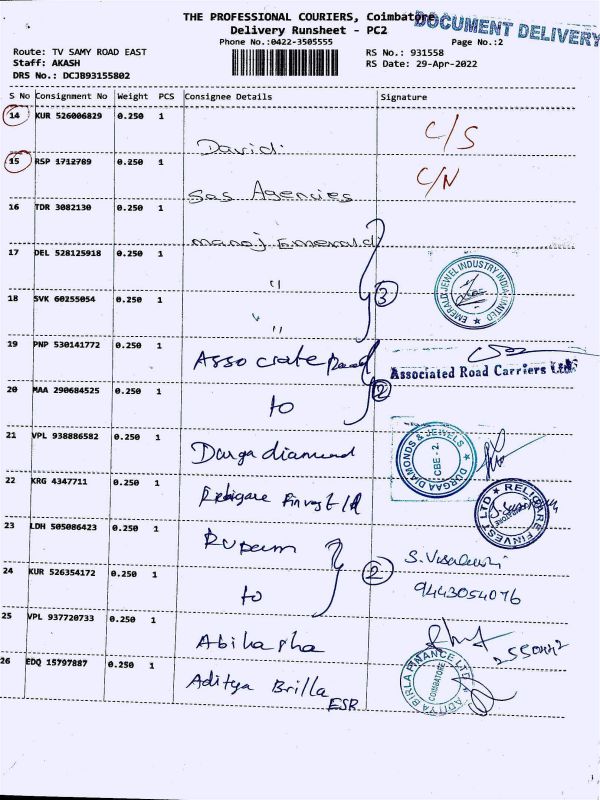 THE PROFESSIONAL COURIERS, Coimbatore
DOCUMENT DELIVERY
Delivery Runsheet - PC2
Phone No.:0422-3505555
Page No.:2
Route: TV SAMY ROAD EAST
RS No.: 931558
Staff: AKASH
RS Date: 29-Apr-2022
DRS No.: DCJB93155802
S No Consignment No Weight PCS Consignee Details Signature
14 KUR 526006829 0.250 1
David
C/S
15 RSP 1712789 0.250 1
Sas Agencies
C/N
16 TDR 3082130 0.250 1
Manoj Emerald
17 DEL 528125918 0.250 1
"
EMERALD JEWEL INDUSTRY INDIA LIMITED
18 SVK 60255054 0.250 1
"
3
19 PNP 530141772 0.250 1
Associate Road
Associated Road Carriers Ltd.
20 MAA 290684525 0.250 1
to
2
21 VPL 938886582 0.250 1
Durga diamond
DURGAA DIAMONDS & JEWELS
CBE - 2.
22 KRG 4347711 0.250 1
Religare Finvest
RELIGARE FINVEST LTD
23 LDH 505086423 0.250 1
Rupam
S.
24 KUR 526354172 0.250 1
to
2
9443054076
25 VPL 937720733 0.250 1
Abilasha
26 EDQ 15797887 0.250 1
Aditya Brilla
ESR
ADITYA BIRLA FINANCE LTD
COIMBATORE